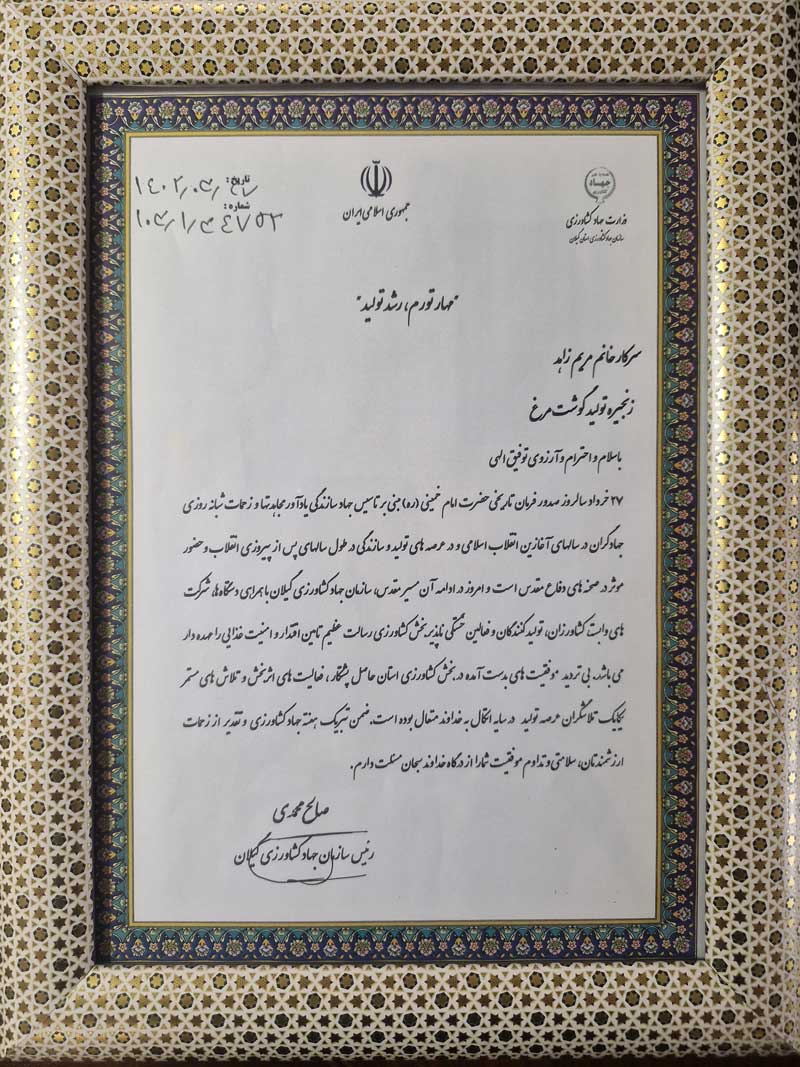 تاریخ: ۱۴۰۲٫۰۳٫
شماره: ۱۰۳٫۱٫۳۴۷۵۳
جمهوری اسلامی ایران
جهاد
وزارت جهاد کشاورزی
سازمان جهاد کشاورزی استان گیلان
"مهار تورم، رشد تولید"
سرکار خانم مریم زاهد
زنجیره تولید گوشت مرغ
باسلام و احترام و آرزوی توفیق الهی
۲۷ خرداد سالروز صدور فرمان تاریخی حضرت امام خمینی (ره) مبنی بر تاسیس جهاد سازندگی یادآور مجاهدتها و زحمات شبانه روزی
جهادگران در سالهای آغازین انقلاب اسلامی و در عرصه های تولید و سازندگی در طول سالهای پس از پیروزی انقلاب و حضور
موثر در صحنه های دفاع مقدس است و امروز در ادامه آن مسیر مقدس، سازمان جهاد کشاورزی گیلان با همراهی دستگاه ها، شرکت
های وابسته کشاورزان، تولید کنندگان و فعالین خستگی ناپذیر بخش کشاورزی رسالت عظیم تامین اقتدار و امنیت غذایی را عهده دار
می باشد. بی تردید موفقیت های بدست آمده در بخش کشاورزی استان حاصل پشتکار، فعالیت های اثربخش و تلاش های مستمر
یکایک تلاشگران عرصه تولید در سایه اتکال به خداوند متعال بوده است. ضمن تبریک هفته جهاد کشاورزی و تقدیر از زحمات
ارزشمندتان، سلامتی و تداوم موفقیت شما را از درگاه خداوند سبحان مسئلت دارم.
صالح محمدی
رئیس سازمان جهاد کشاورزی گیلان